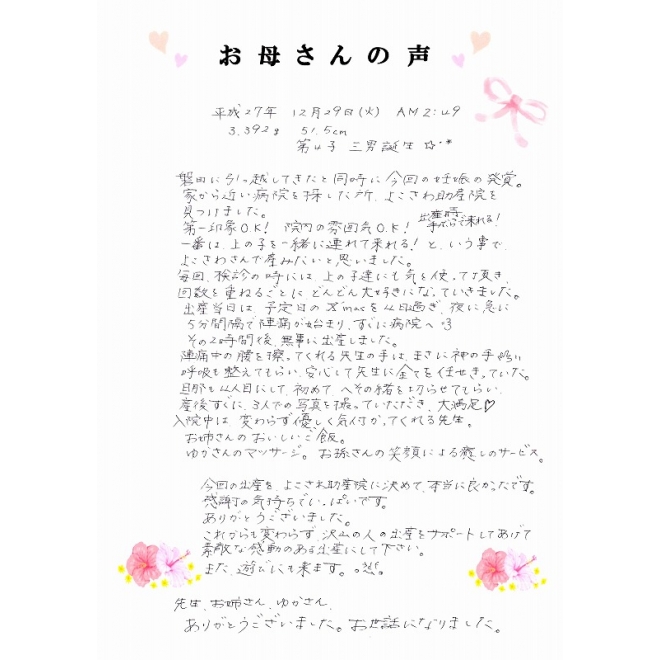 お母さんの声
平成27年 12月29日(火) AM2:49
3.392g 51.5cm
第4子 三男誕生☆・*
磐田に引っ越してきたと同時に今回の妊娠の発覚。
家から近い病院を探した所、よこさわ助産院を
見つけました。
第一印象O.K! 院内の雰囲気O.K!
出産時、
手ぶらで来れる!
一番は、上の子を一緒に連れて来れる!と、いう事で、
よこさわさんで産みたいと思いました。
毎回、検診の時には、上の子達にも気を使って頂き、
回数を重ねるごとに どんどん大好きになっていきました。
出産当日は、予定日のX'masを4日過ぎ、夜に急に
5分間隔で陣痛が始まり、すぐに病院へ=3
その2時間後、無事に出産しました。
陣痛中の腰を擦ってくれる先生の手は、まさに神の手
呼吸も整えてもらい、安心して先生に全てを任せきっていた。
旦那も4人目にして、初めて、へその緒を切らせてもらい、
産後すぐに、3人での写真を撮っていただき、大満足♡
入院中は、変わらず優しく気付かってくれる先生。
お姉さんのおいしいご飯。
ゆかさんのマッサージ。お孫さんの笑顔による癒しのサービス。
今回の出産を、よこさわ助産院に決めて、本当に良かったです。
感謝の気持ちでいっぱいです。
ありがとうございました。
これからも変わらず、沢山の人の出産をサポートしてあげて
素敵な感動のある出産にして下さい。
また、遊びにも来ます。
先生、お姉さん、ゆかさん、
ありがとうございました。お世話になりました。